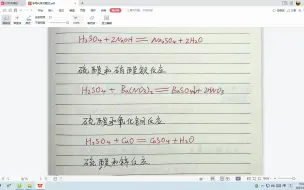 H₂SO₄ + 2NaOH = Na₂SO₄ + 2H₂O
硫酸和硝酸钡反应
H₂SO₄ + Ba(NO₃)₂ = BaSO₄↓ + 2HNO₃
硫酸和氧化铜反应
H₂SO₄ + CuO = CuSO₄ + H₂O
硫酸和锌反应